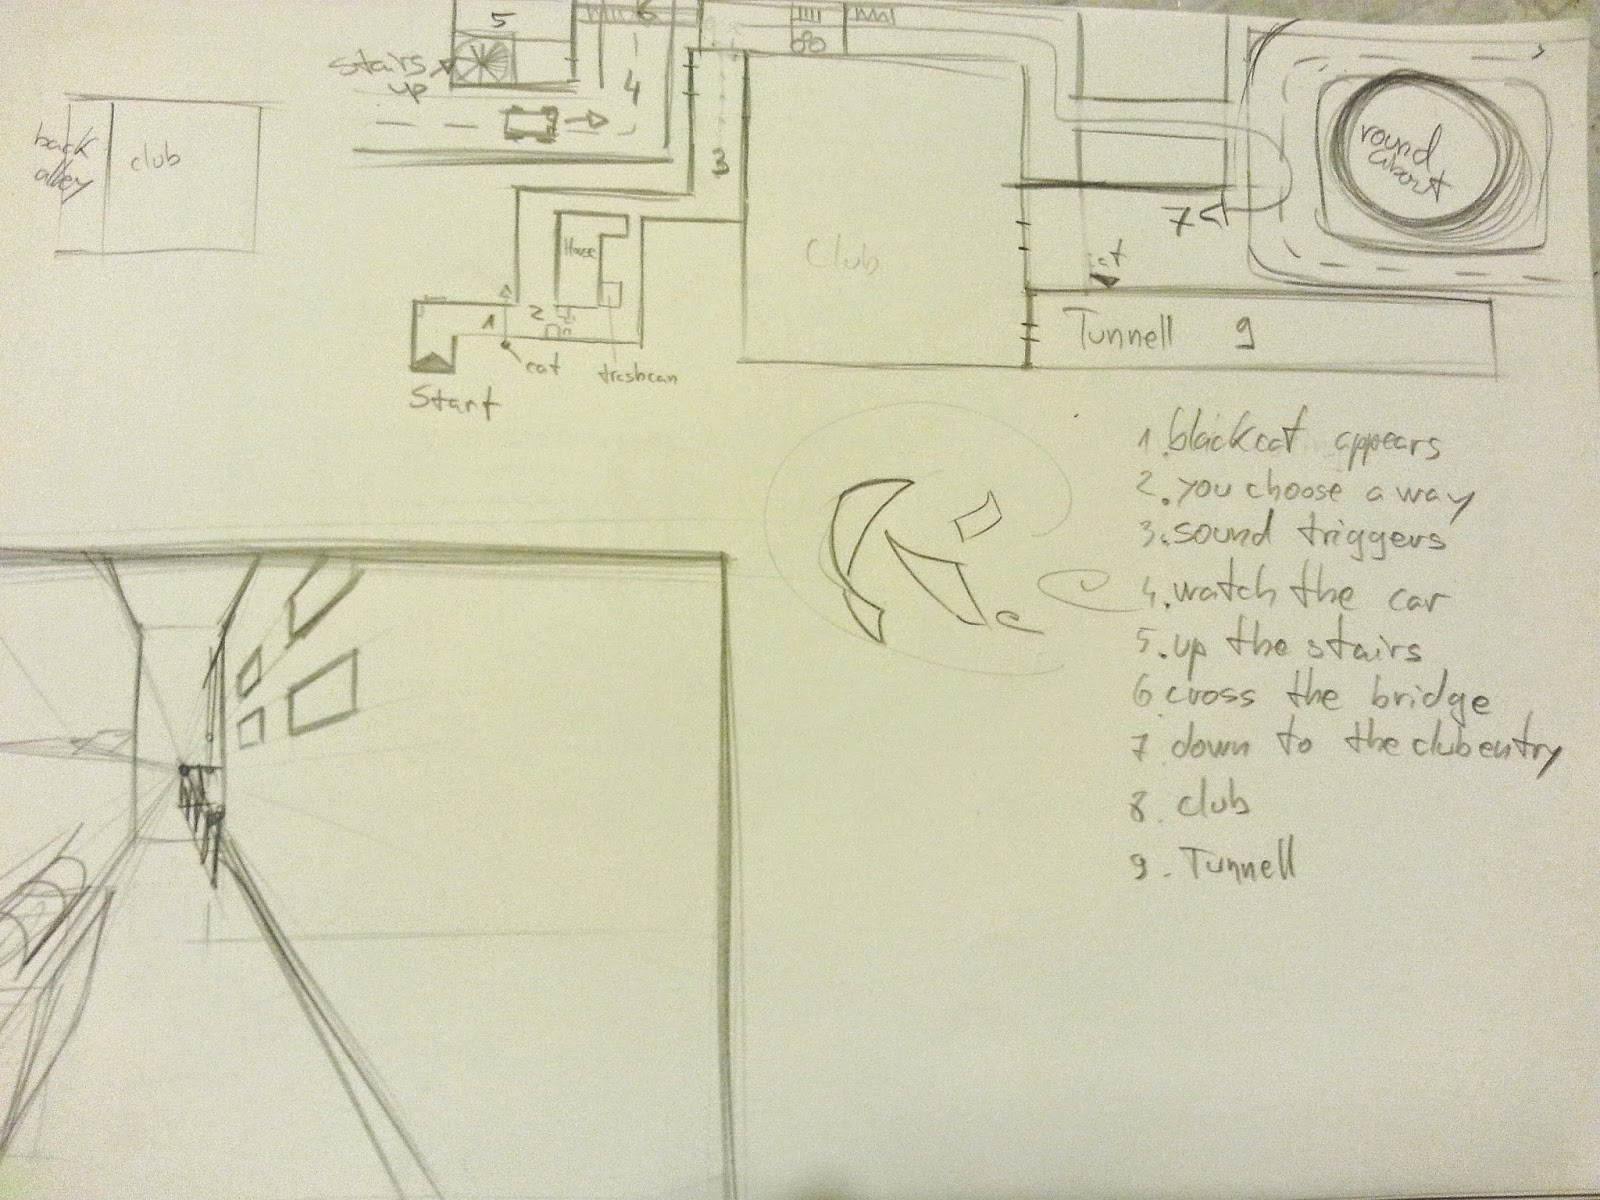 5
6
stairs
up
4
3
back
alley
club
round
about
7
House
Club
cat
1
2
Tunnell 9
cat
trashcan
Start
1. blackcat appears
2. you choose a way
3. sound triggers
4. watch the car
5. up the stairs
6 cross the bridge
7 down to the club entry
8. club
9. Tunnell